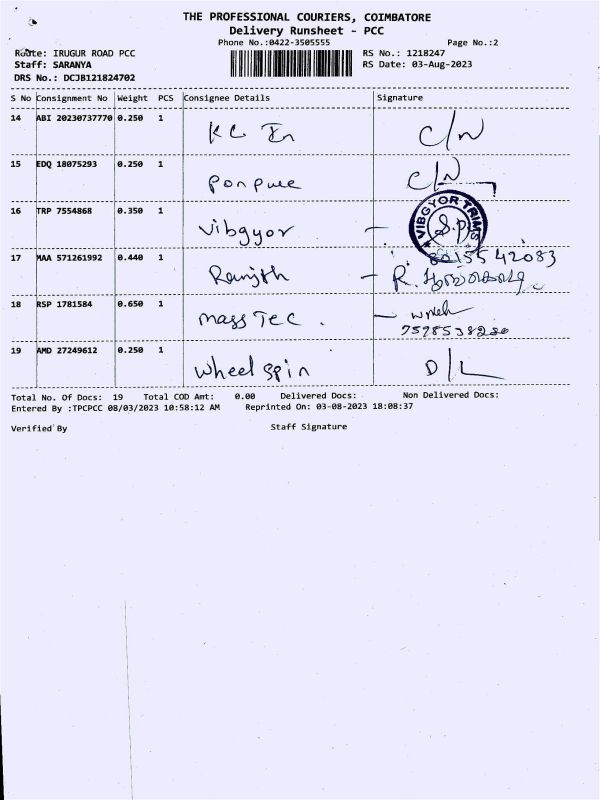 THE PROFESSIONAL COURIERS, COIMBATORE
Delivery Runsheet - PCC
Phone No.:0422-3505555 Page No.:2
Route: IRUGUR ROAD PCC RS No.: 1218247
Staff: SARANYA RS Date: 03-Aug-2023
DRS No.: DCJB121824702
S No Consignment No Weight PCS Consignee Details Signature
14 ABI 20230737770 0.250 1 KC In C/N
15 EDQ 18075293 0.250 1 Ponpure C/N
16 TRP 7554868 0.350 1 Vibgyor - VIBGYOR TRIMS S.P
17 MAA 571261992 0.440 1 Ranjith - R. 8015542083
18 RSP 1781584 0.650 1 mass Tec . -
19 AMD 27249612 0.250 1 wheel spin D/L
Total No. Of Docs: 19 Total COD Amt: 0.00 Delivered Docs: Non Delivered Docs:
Entered By :TPCPCC 08/03/2023 10:58:12 AM Reprinted On: 03-08-2023 18:08:37
Verified By Staff Signature